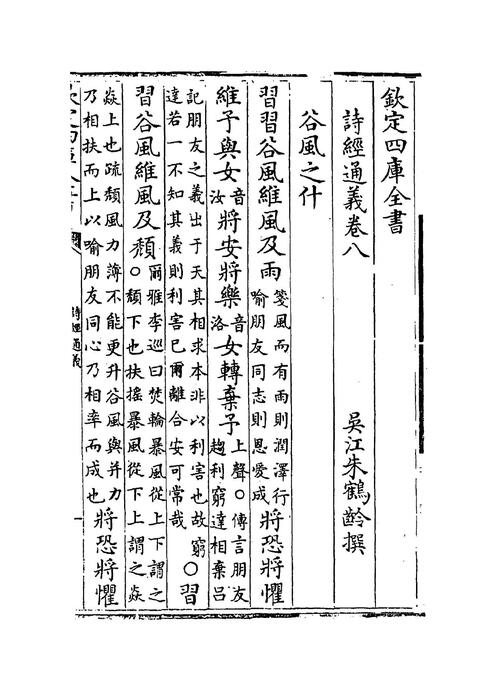 欽定四庫全書
詩經通義卷八
吳江朱鶴齡撰
谷風之什
習習谷風維風及雨箋風而有雨則潤澤行喻朋友同志則恩愛成將恐將懼
維予與女音汝將安將樂音洛女轉棄予上聲○傳言朋友趨利窮達相棄呂
記朋友之義出于天其相求本非以利害也故窮達若一不知其義則利害已爾離合安可常哉○習
習谷風維風及頹爾雅李巡曰焚輪暴風從上下謂之○頹下也扶搖暴風從下上謂之焱
焱上也疏頹風力薄不能更升谷風與并力乃相扶而上以喻朋友同心乃相率而成也將恐將懼
詩經通義
一